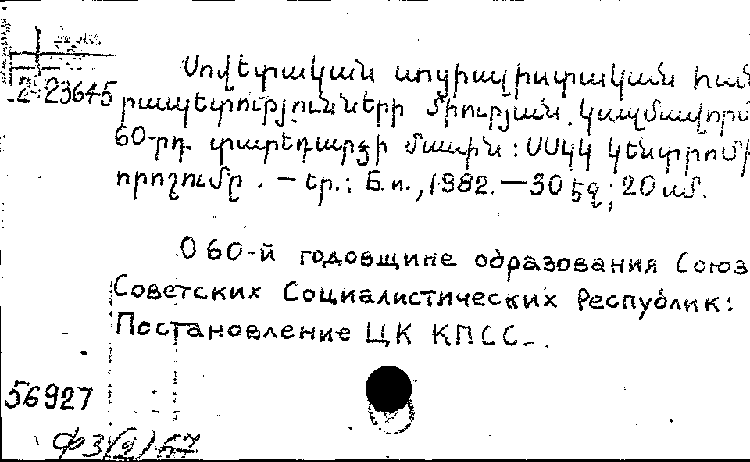 2-23645
Սովետական սոցիալիստական հան
րապետությունների միության կազմավորմ
60-րդ տարեդարձի մասին: ՍՄԿԿ կենտկոմի
որոշումը. — Եր.: Б.и., 1982. — 30 էջ; 20 սմ.
О 60-й годовщине образования Союз
Советских Социалистических Республик:
Постановление ЦК КПСС...
56927